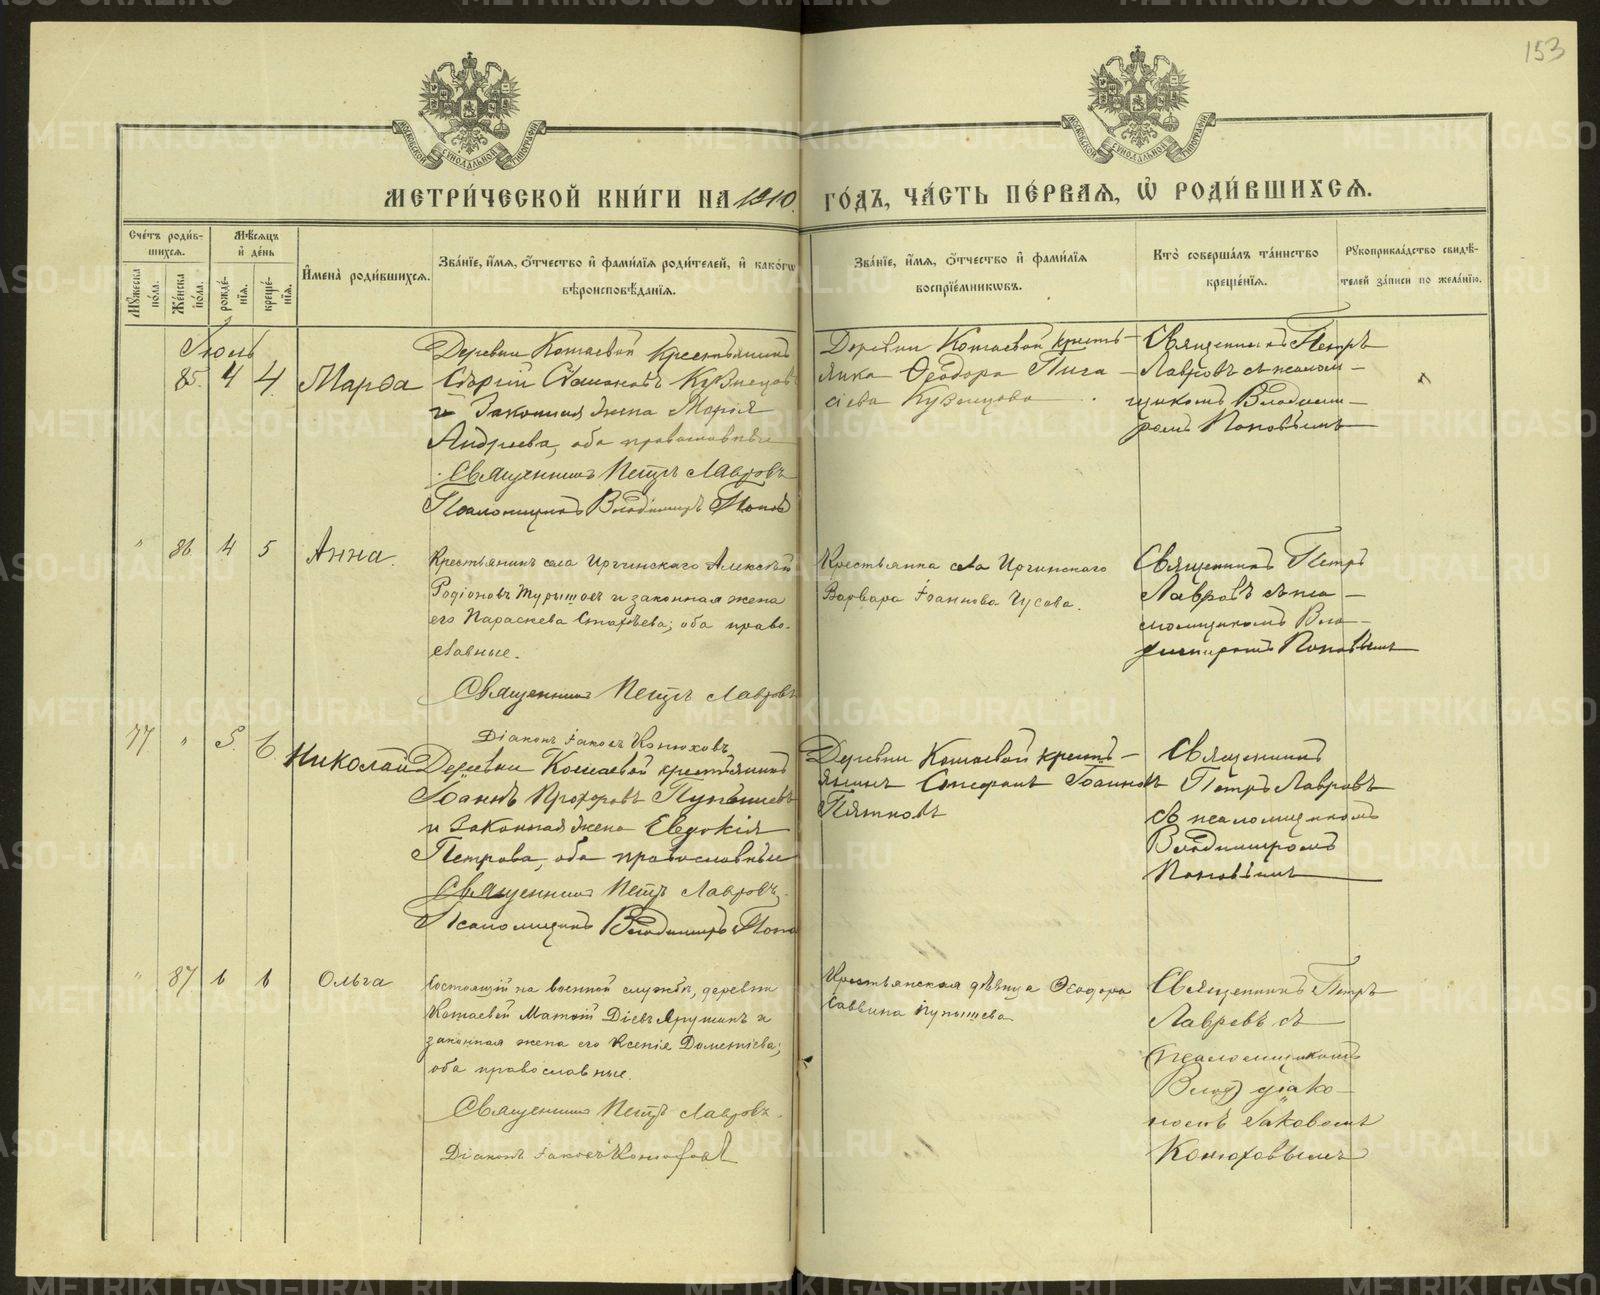 153
МОСКОВСКОЙ СѴНОДАЛЬНОЙ ТИПОГРАФІИ
МОСКОВСКОЙ СѴНОДАЛЬНОЙ ТИПОГРАФІИ
МЕТРИ́ЧЕСКОЙ КНИ́ГИ НА 1910 ГО́ДЪ, ЧА́СТЬ ПЕ́РВАЯ, Ѡ҆ РОДИ́ВШИХСЯ.
Сче́тъ роди́в-
шихся.
Мꙋ́жеска по́ла.
Же́нска по́ла.
Мѣ́сяцъ
и҆ де́нь
рожде́-
нїя.
креще́-
нїя.
И҆мена̀ роди́вшихся.
Зва́нїе, и҆́мя, ѻ҆́тчество и҆ фами́лїя роди́телей, и҆ како́гѡ
вѣроисповѣ́данїя.
Зва́нїе, и҆́мя, ѻ҆́тчество и҆ фами́лїя
воспрїе́мникѡвъ.
Кто̀ соверша́лъ та́инство
креще́нїя.
Рꙋкоприкла́дство свидѣ́-
телей за́писи по жела́нїю.
Іюль
85. 4 4. Марѳа
Деревни Кошаевой крестьянинъ
Сергій Стахіевъ Кузнецовъ
и законная жена Марія
Андреева, оба православные
Священникъ Петръ Лавровъ
Псаломщикъ Владимиръ Поповъ
Деревни Кошаевой кресть-
янка Ѳеодора
Кузнецова
Священникъ Петръ
Лавровъ съ псалом-
щикомъ Владими-
ромъ Поповымъ
" 86 4 5 Анна.
Крестьянинъ села Иргинскаго Алексѣй
Родіоновъ Турышевъ и законная жена
его Параскева Стахѣева; оба право-
славные.
Священникъ Петръ Лавровъ
Діаконъ Іаковъ Конюховъ
Крестьянка села Иргинскаго
Варвара Іоаннова Чусова.
Священникъ Петръ
Лавровъ съ пса-
ломщикомъ Вла-
димиромъ Поповымъ
77 " 5. 6 Николай
Деревни Кошаевой крестьянинъ
Іоаннъ Прохоровъ Пупышевъ
и законная жена Евдокія
Петрова, оба православные
Священникъ Петръ Лавровъ.
Псаломщикъ Владимиръ Попо
Деревни Кошаевой кресть-
янинъ Стефанъ Іоанновъ
Пятковъ
Священникъ
Петръ Лавровъ
съ псаломщикомъ
Владимиромъ
Поповымъ
" 87 6 6 Ольга
Состоящій на военной службѣ, деревни
Кошаевой Матѳій Діевъ Ярушинъ и
законная жена его Ксенія Дометіева;
оба православные.
Священникъ Петръ Лавровъ.
Діаконъ Іаковъ Конюховъ
Крестьянская дѣвица Ѳеодора
Саввина Пупышева
Священникъ Петръ
Лавровъ съ
діако-
номъ Іаковомъ
Конюховымъ
METRIKI.GASO-URAL.RU